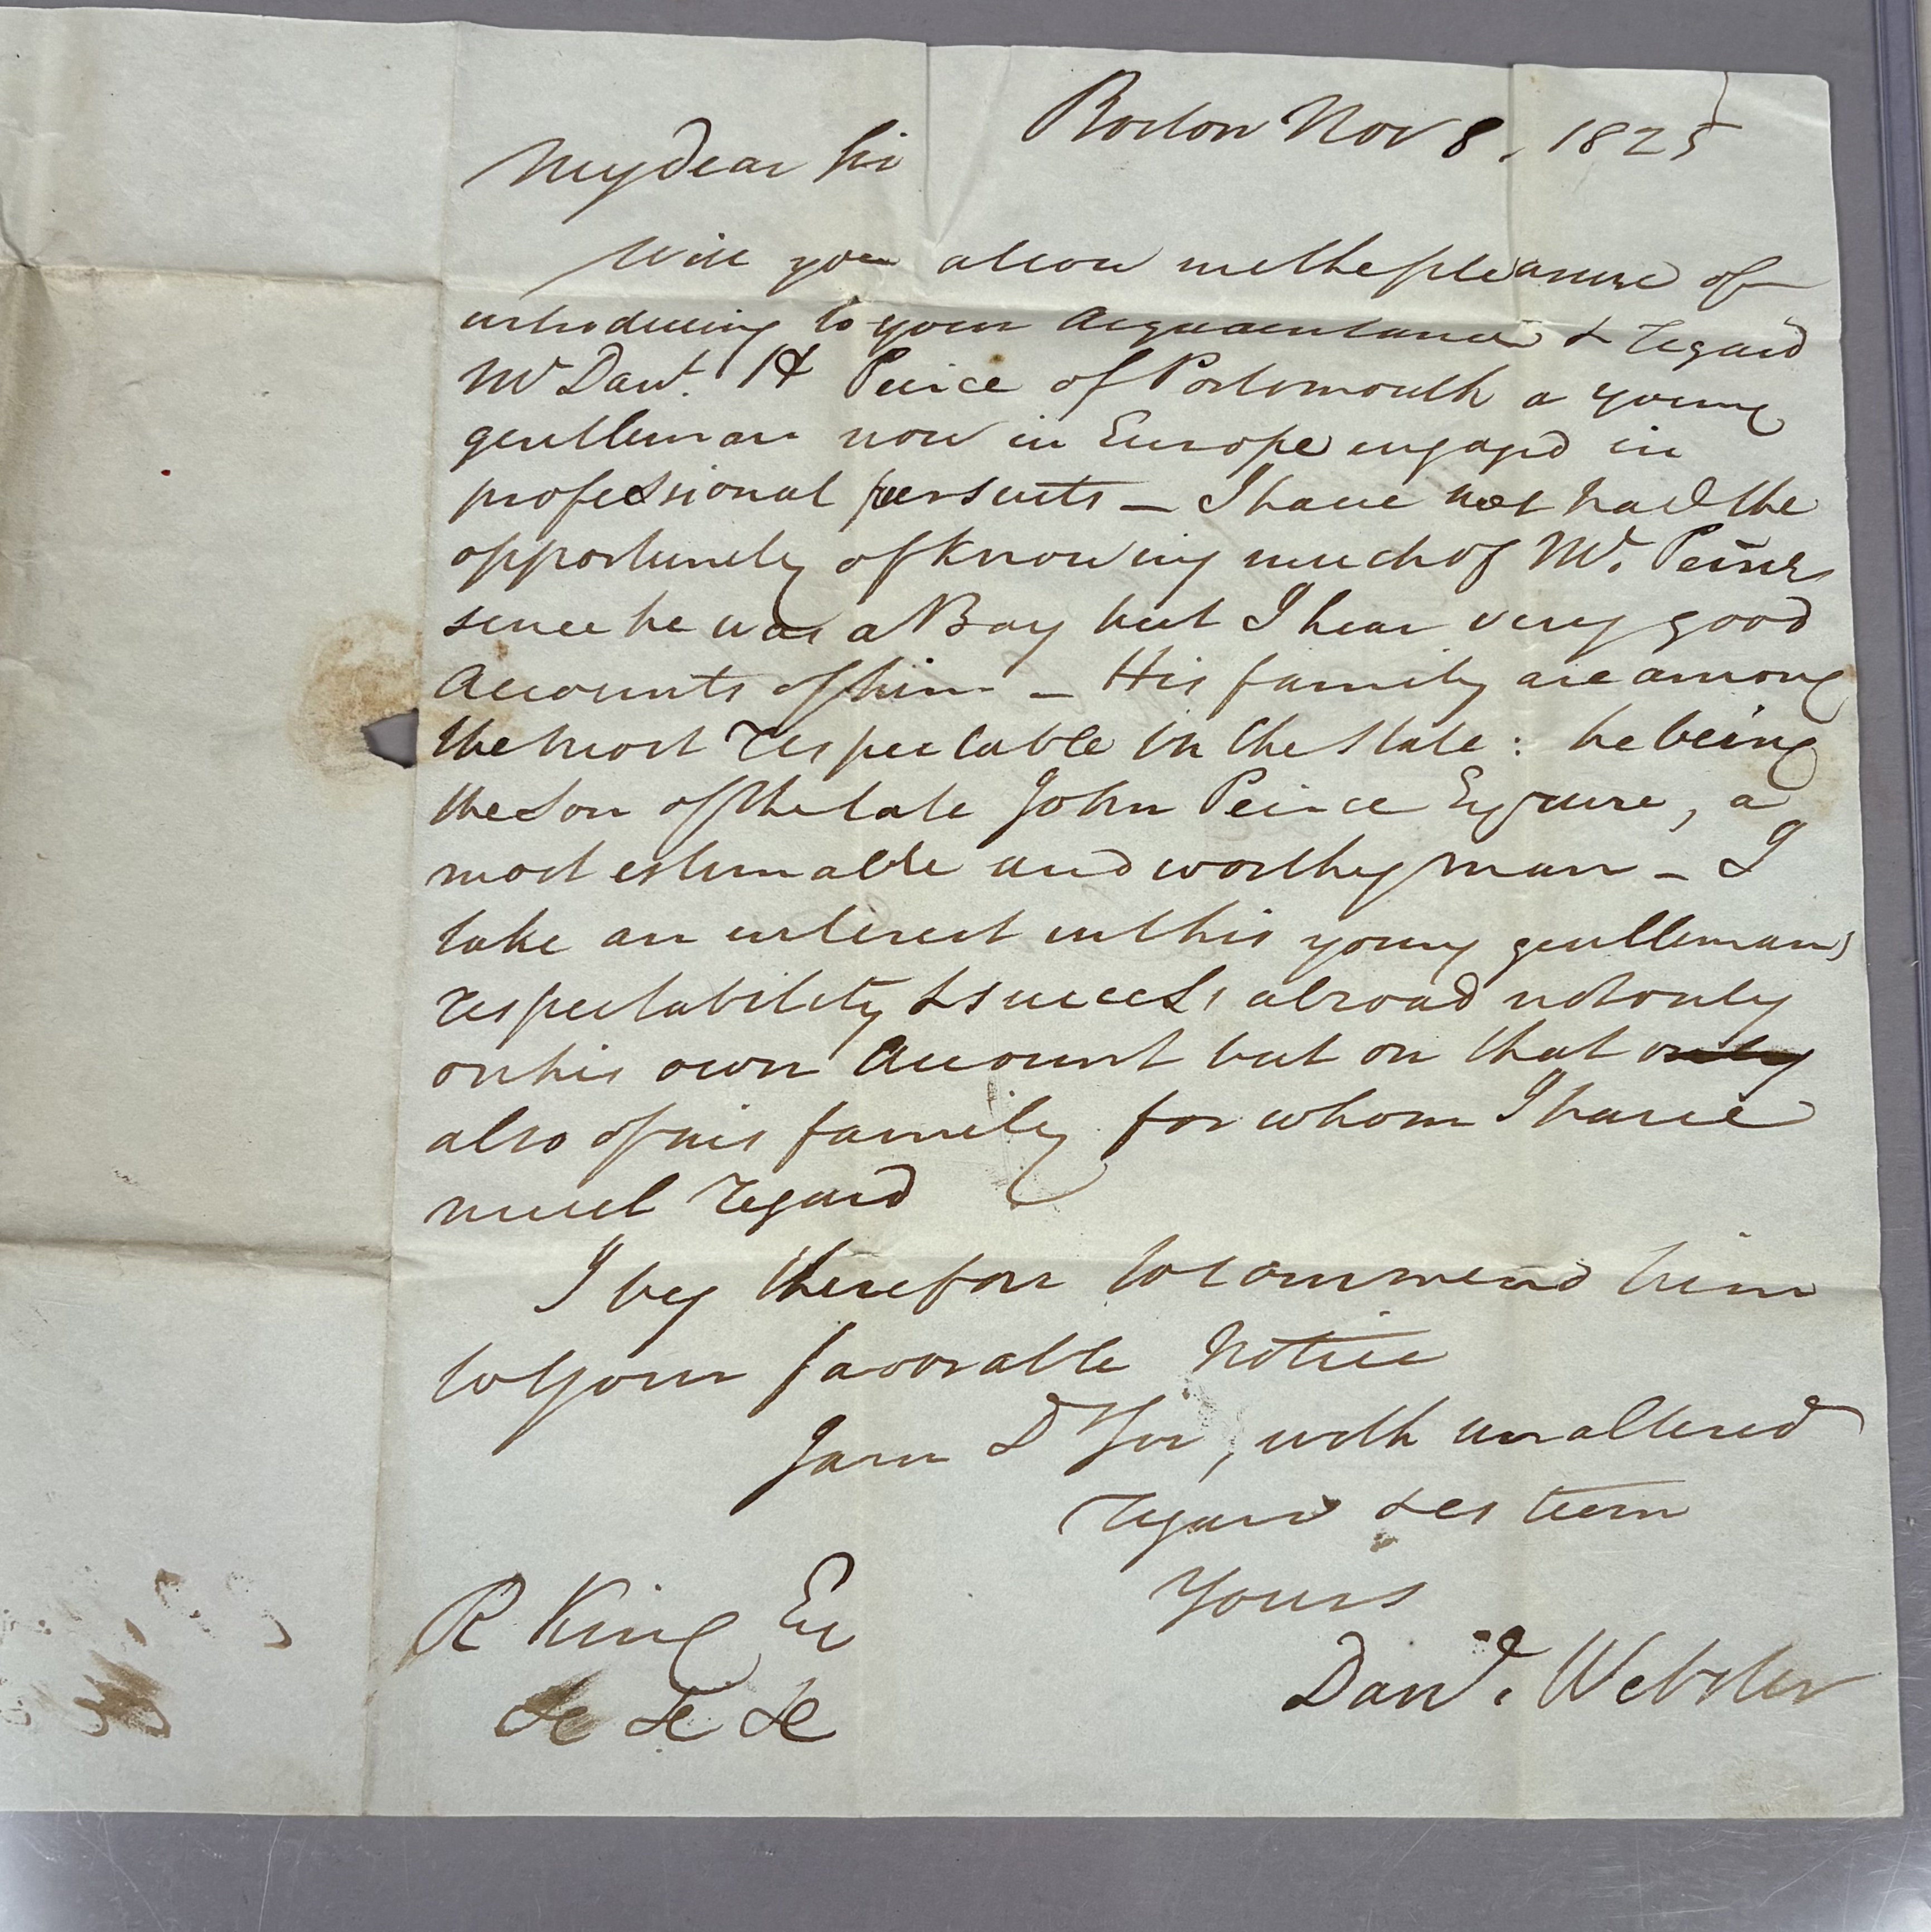 Boston Nov 8. 1825
My dear Sir
Will you allow me the pleasure of
introducing to your acquaintance & regard
Mr Danl. H Peirce of Portsmouth a young
gentleman now in Europe engaged in
professional pursuits — I have not had the
opportunity of knowing much of Mr. Peirce
since he was a Boy but I hear very good
accounts of him — His family are among
the most respectable in the State: he being
the son of the late John Peirce Esquire, a
most estimable and worthy man — I
take an interest in this young gentlemans
respectability & success abroad not only
on his own account but on that only
also of his family for whom I have
much regard
I beg therefore to commend him
to your favorable notice
I am D Sir, with unaltered
regard & esteem
Yours
Danl. Webster
R King Esq
&c &c &c